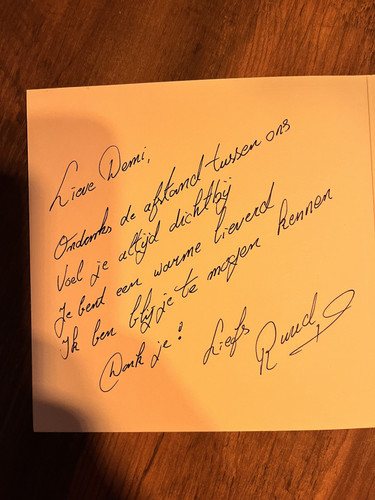 Lieve Demi,
Ondanks de afstand tussen ons
Voel je altijd dichtbij
Je bent een warme lieverd
Ik ben blij je te mogen kennen
Dank je!
Liefs
Ruud